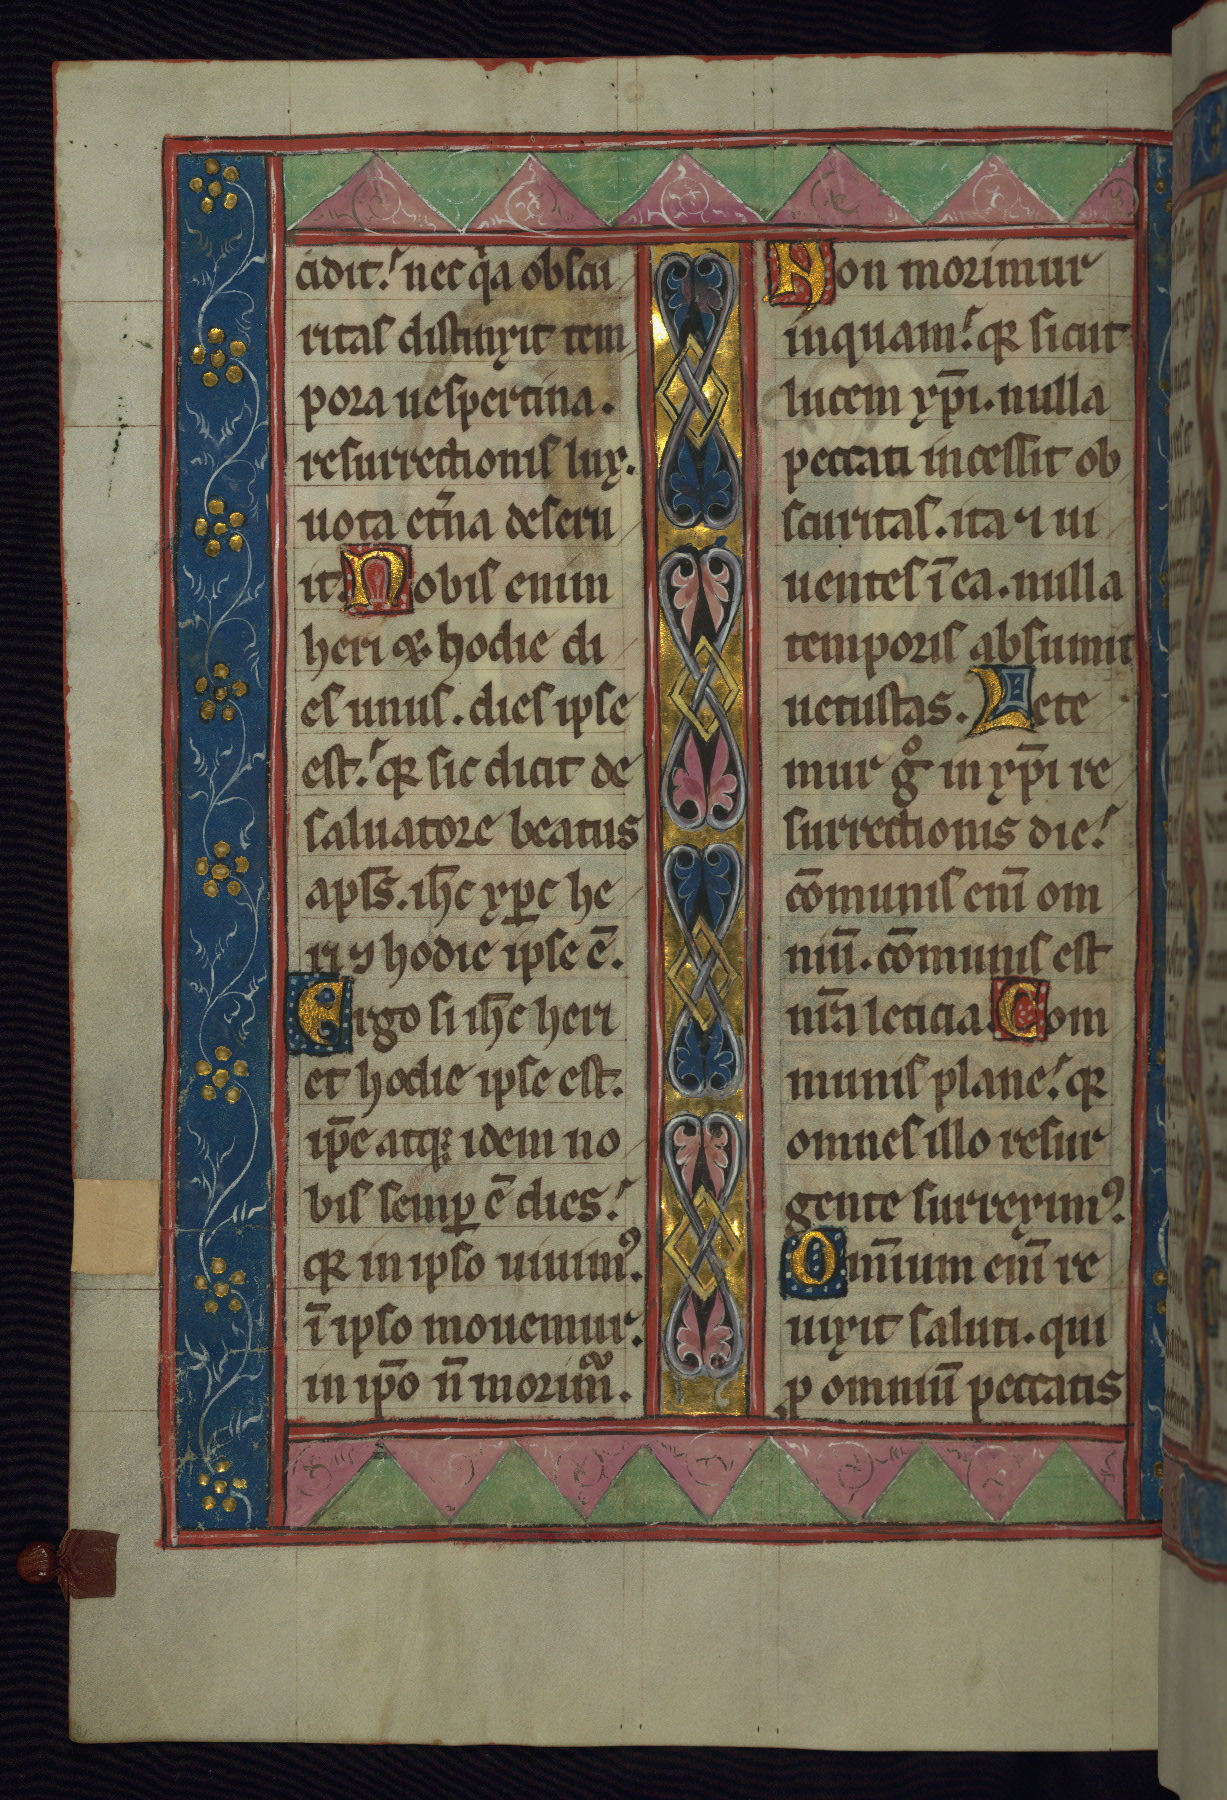 cidit. nec q̄a obscu
ritas distinxit tem
pora uespertina.
resurrectionis lux.
uota et̄na deseru
it. Nobis enim
heri & hodie di
es unus. dies ipse
est. qꝛ sic dicit de
saluatore beatus
apłs. ih̄c xp̄c he
ri ⁊ hodie ipse ē.
Ergo si ih̄c heri
et hodie ipse est.
ip̄e atqꝫ idem no
bis semꝑ ē dies.
qꝛ in ipso uiuimꝰ.
ī ipso mouemur.
in ip̄o n̄ morim̄.
Non morimur
inquam. qꝛ sicut
lucem xp̄i. nulla
peccati incessit ob
scuritas. ita ⁊ ui
uentes ī ea. nulla
temporis absumit
uetustas. Lete
mur gͦ in xp̄i re
surrectionis die.
cōmunis enī om
niū. cōmunis est
nr̄a leticia. Com
munis plane. qꝛ
omnes illo resur
gente surreximꝰ.
Omīum enī re
uixit saluti. qui
ꝑ omniū peccatis